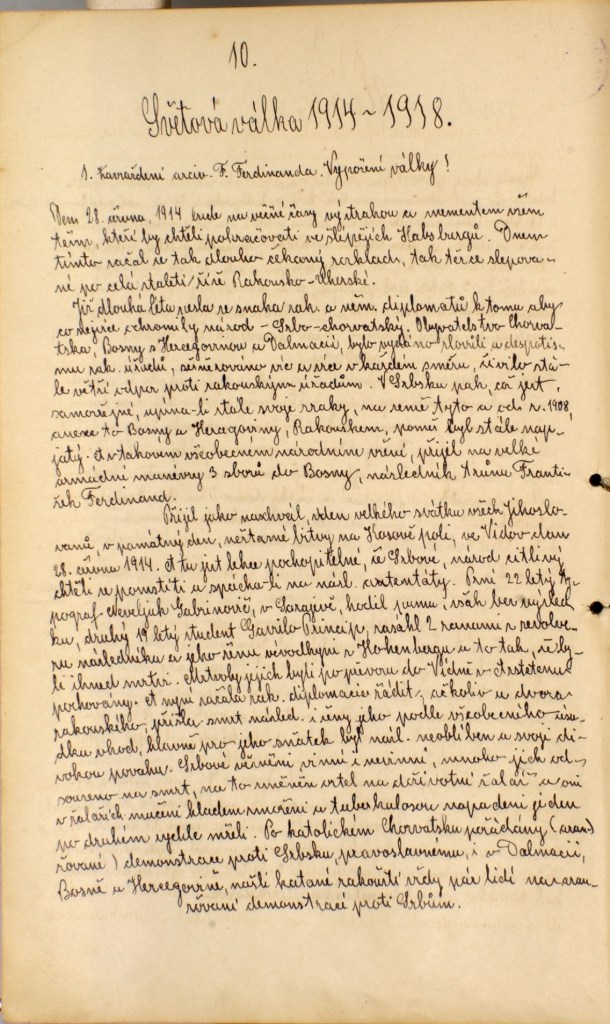 10.
Světová válka 1914 ~ 1918.
1. Zavraždění arciv. F. Ferdinanda. Vypovění války!
Dem 28. června, 1914 bude na věčné časy výstrahou a mementem všem
těm, kteří by chtěli pokračovati ve šlépějích Habsburgů. Dnem
tímto začal se tak dlouho čekaný rozklad, tak těžce slepova-
né po celá staletí říše Rakousko-Uherské.
Již dlouhá léta nesla se snaha rak. a něm. diplomatů k tomu aby
co nejvíce ochromily národ - Srbo-chorvatský. Obyvatelstvo Chorva-
tska, Bosny s Hercegovinou a Dalmacií, bylo zlovůli a despotis-
mu rak. úřadů, více a více v každém směru, živilo stá-
le větší odpor proti rakouským úřadům. V Srbsku pak, což jest
samozřejmé, upína-li stále svoje zraky, na země tyto a od r. 1908
anexe to Bosny a Heregoviny, Rakouskem, poměr byl stále nap-
jatý. A v takovém všeobecném národním vření, přijel na velké
armádní manévry 3 sborů do Bosny, následník trůnu Franti-
šek Ferdinand.
Přijel jako naschvál, v den velkého svátku všech Jihoslo-
vanů, v památný den, nešťasné bitvy na Kosově poli, ve Vidov-dan
28. června 1914. A tu jest lehce pochopitelné, že Srbové, národ citlivý
chtěli se pomstíti a spácha-li na násl. atentáty. Prní 22 letý ty-
pograf Nevelјuk Gabrinovič, v Sarajevě, hodil pumu, však bez výsled-
ku, druhý 19 letý student Gavrilo Princip, zasáhl 2 ranami z revolve-
ru následníka a jeho ženu vévodkyni z Hohenbergu a to tak, že by-
li ihned mrtvi. Mrtvoly jejich byli po převozu do Vídně v Arstetenu
pochovány. A nyní začala rak. diplomacie řádit, ačkoliv u dvora
rakouského, přišla smrt násled. i ženy jeho podle všeobecného úsu-
dku vhod, hlavně pro jeho sňatek byl násl. neoblíben a svoji di-
vokou povahu. Srbové věznění vinní i nevinní, mnoho jich od-
souzeno na smrt, na to změněn ortel na doživotní žalář a oni
v žalářích mučeni hladem zmořeni a tuberkulosou napadeni jeden
po druhém rychle mřeli. Po katolickém Chorvatsku pořádány (aran-
žované) demonstrace proti Srbsku pravoslavnému, i v Dalmacii,
Bosně a Hercegovině, našli katané rakouští vždy pár lidí na aran-
žování demonstrací proti Srbům.